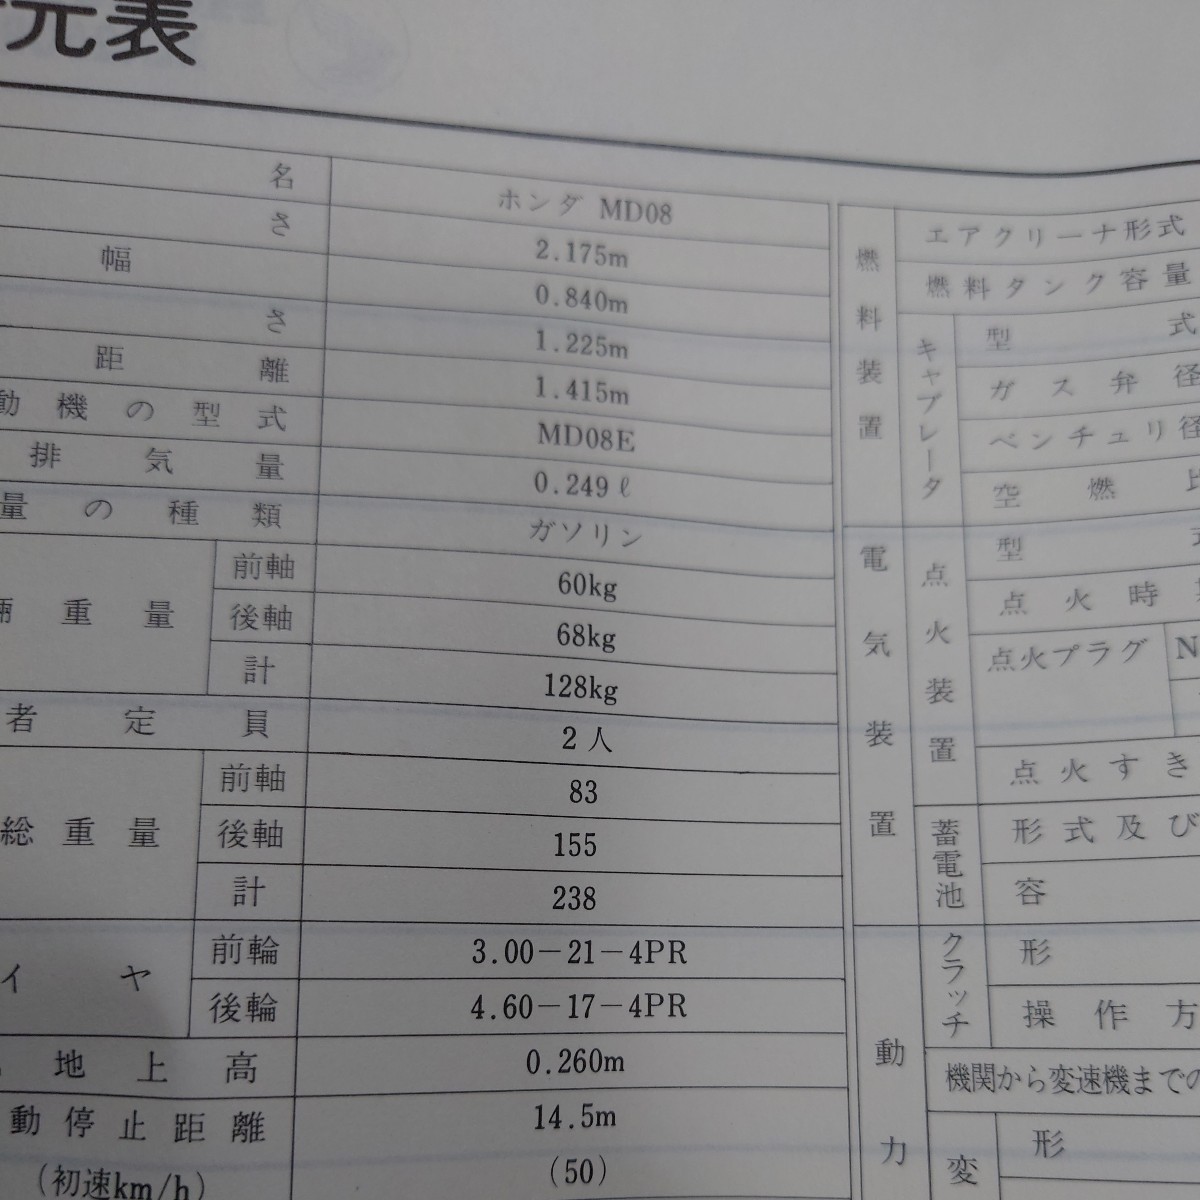 元表
名 ホンダ MD08
さ 2.175m
幅 0.840m
さ 1.225m
距離 1.415m
動機の型式 MD08E
排気量 0.249ℓ
量の種類 ガソリン
重量 前軸 60kg
後軸 68kg
計 128kg
者定員 2人
総重量 前軸 83
後軸 155
計 238
イヤ 前輪 3.00-21-4PR
後輪 4.60-17-4PR
地上高 0.260m
動停止距離 14.5m
(初速km/h) (50)
燃料装置
エアクリーナ形式
燃料タンク容量
キャブレータ
型式
ガス弁径
ベンチュリ径
空燃比
電気装置
点火装置
型
点火時
点火プラグ N
点火すき
蓄電池
形式及び
容
動力
クラッチ
形
操作方
機関から変速機までの
変
形